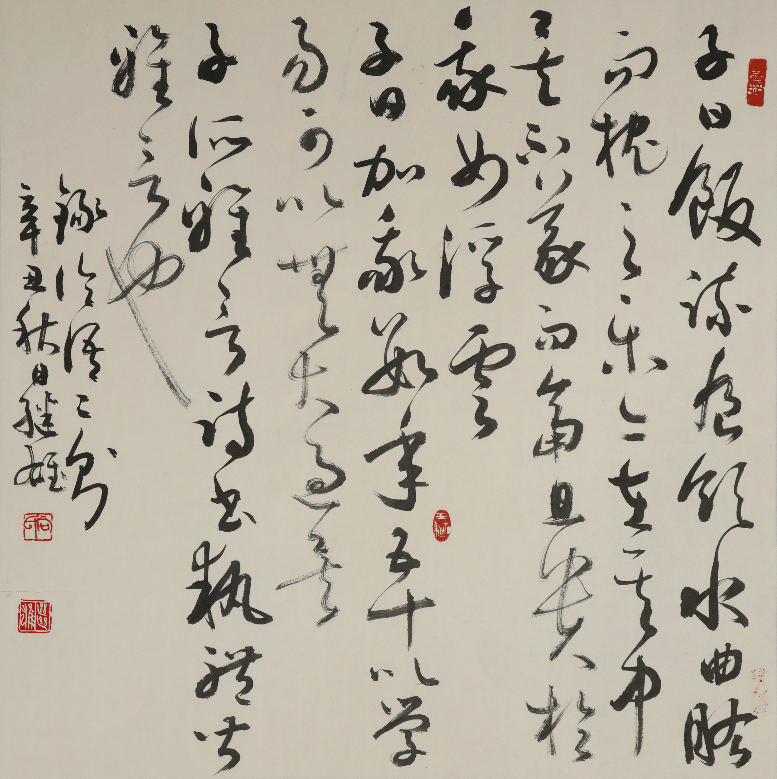 子曰飯疏食飲水曲肱
而枕之樂亦在其中
矣不義而富且貴於
我如浮雲
子曰加我數年五十以學
易可以無大過矣
子所雅言詩書執禮皆
雅言也
錄論語二則
辛丑秋日繼雄